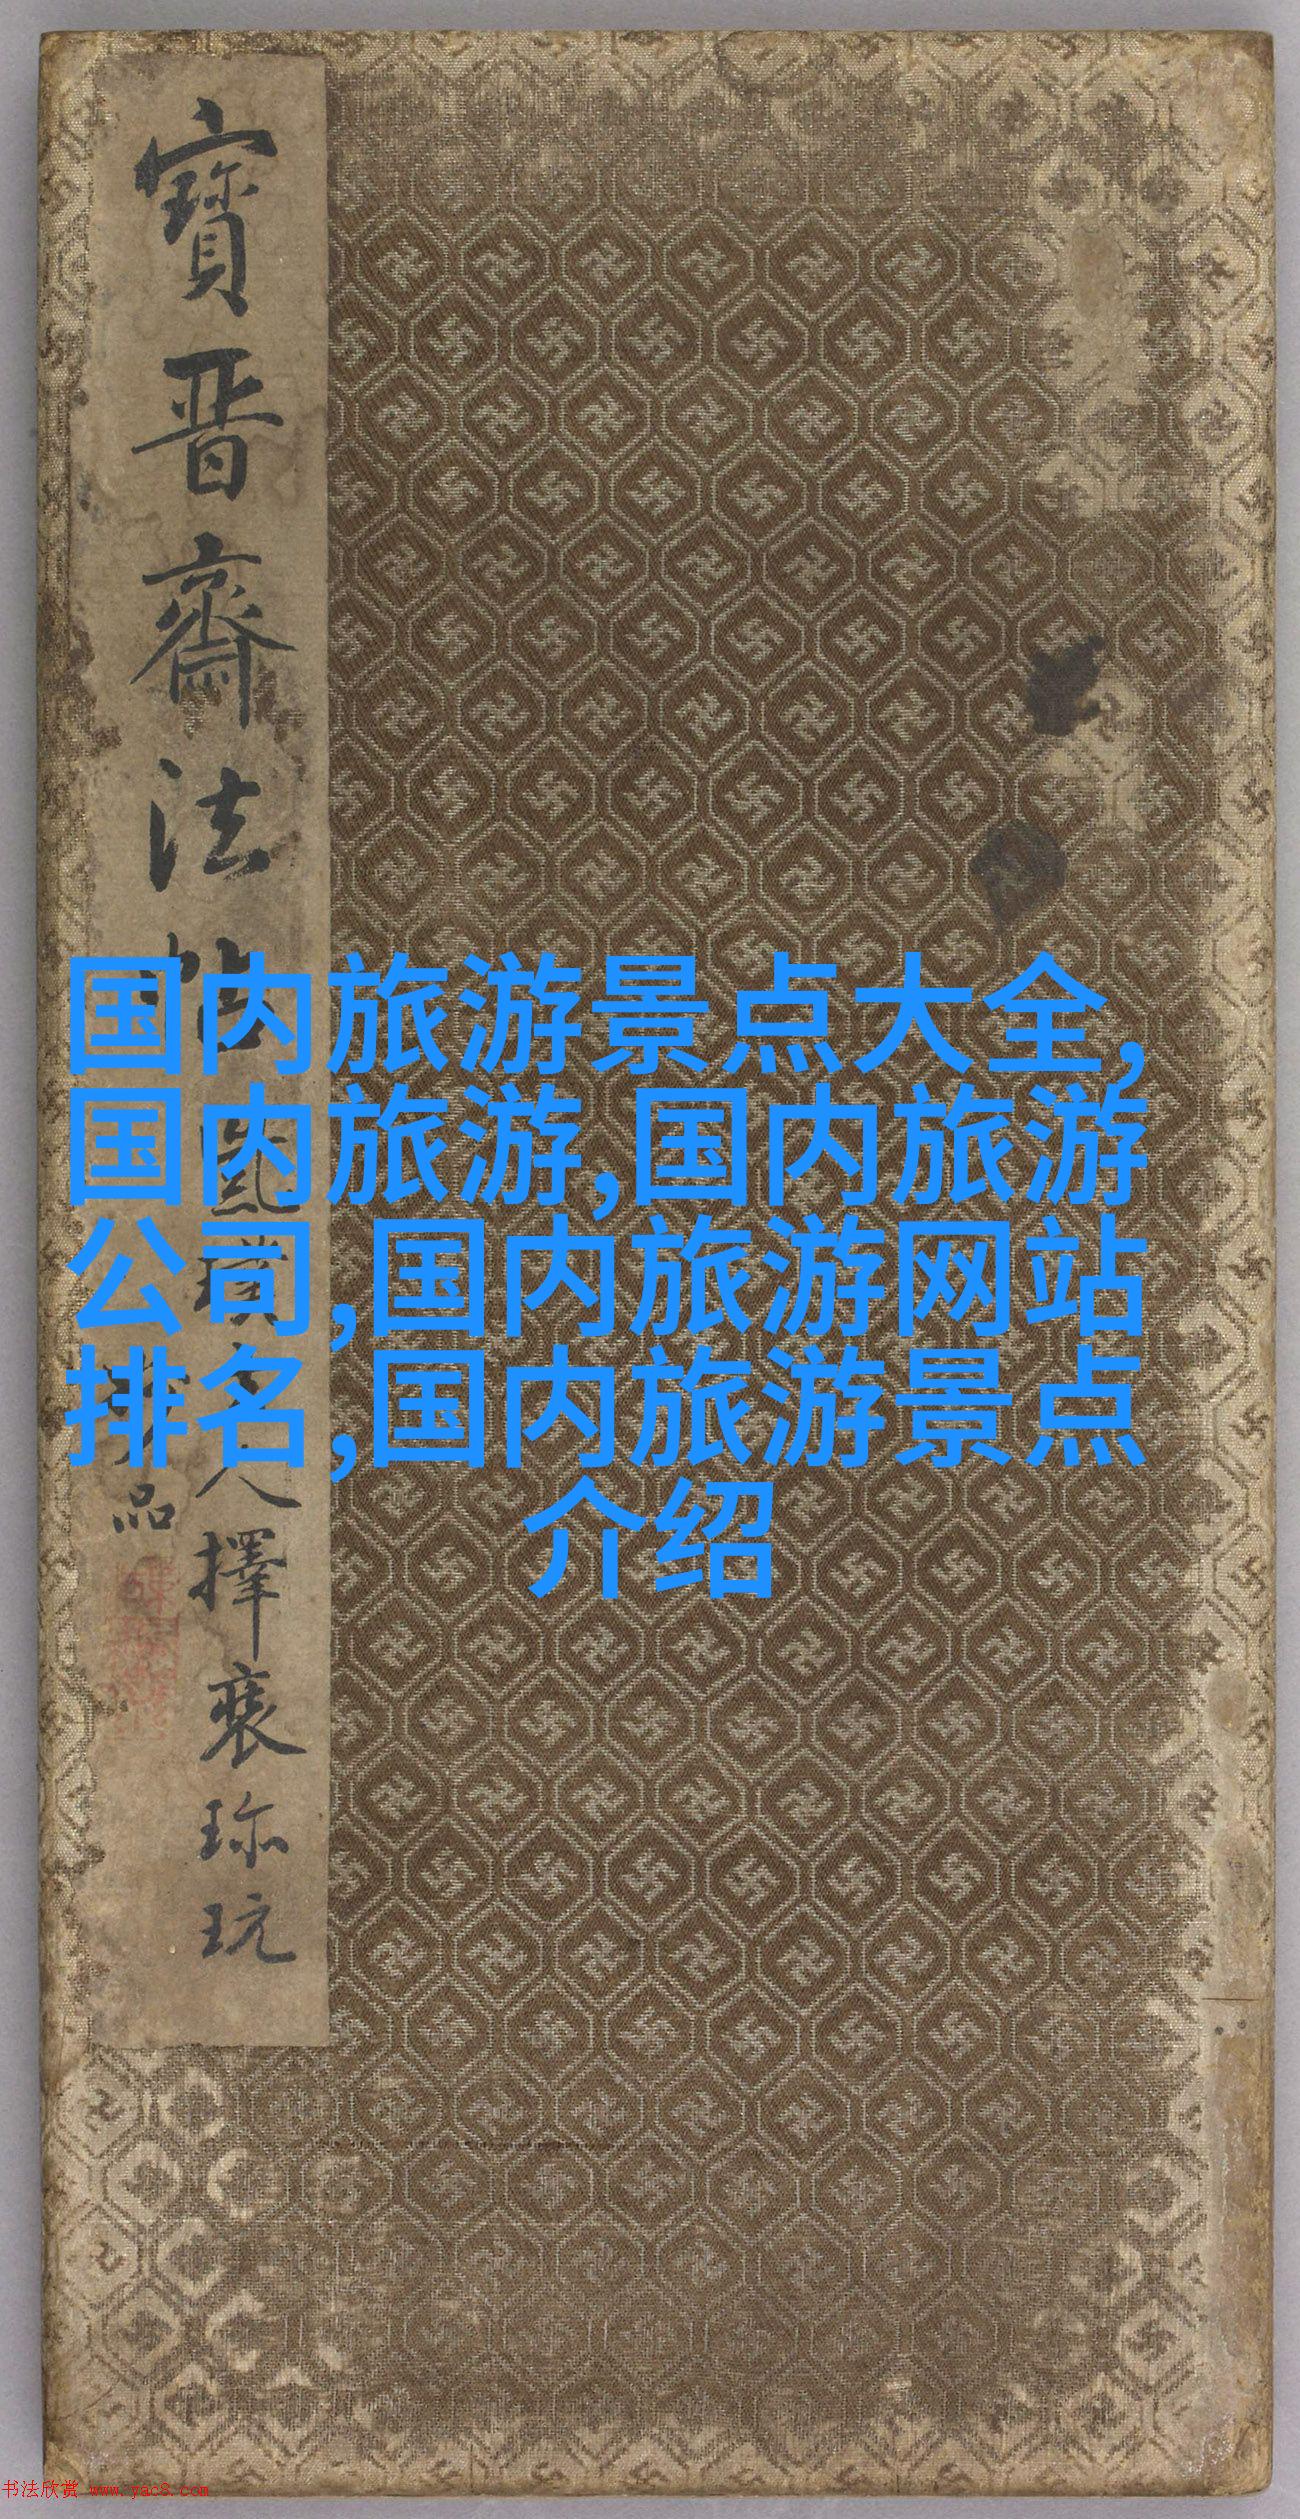 寶晋齋法帖
擇裘珎玩
品
国内旅游景点大全,
国内旅游,国内旅游
公司,国内旅游网站
排名,国内旅游景点
介绍
书法欣赏 www.yac8.com